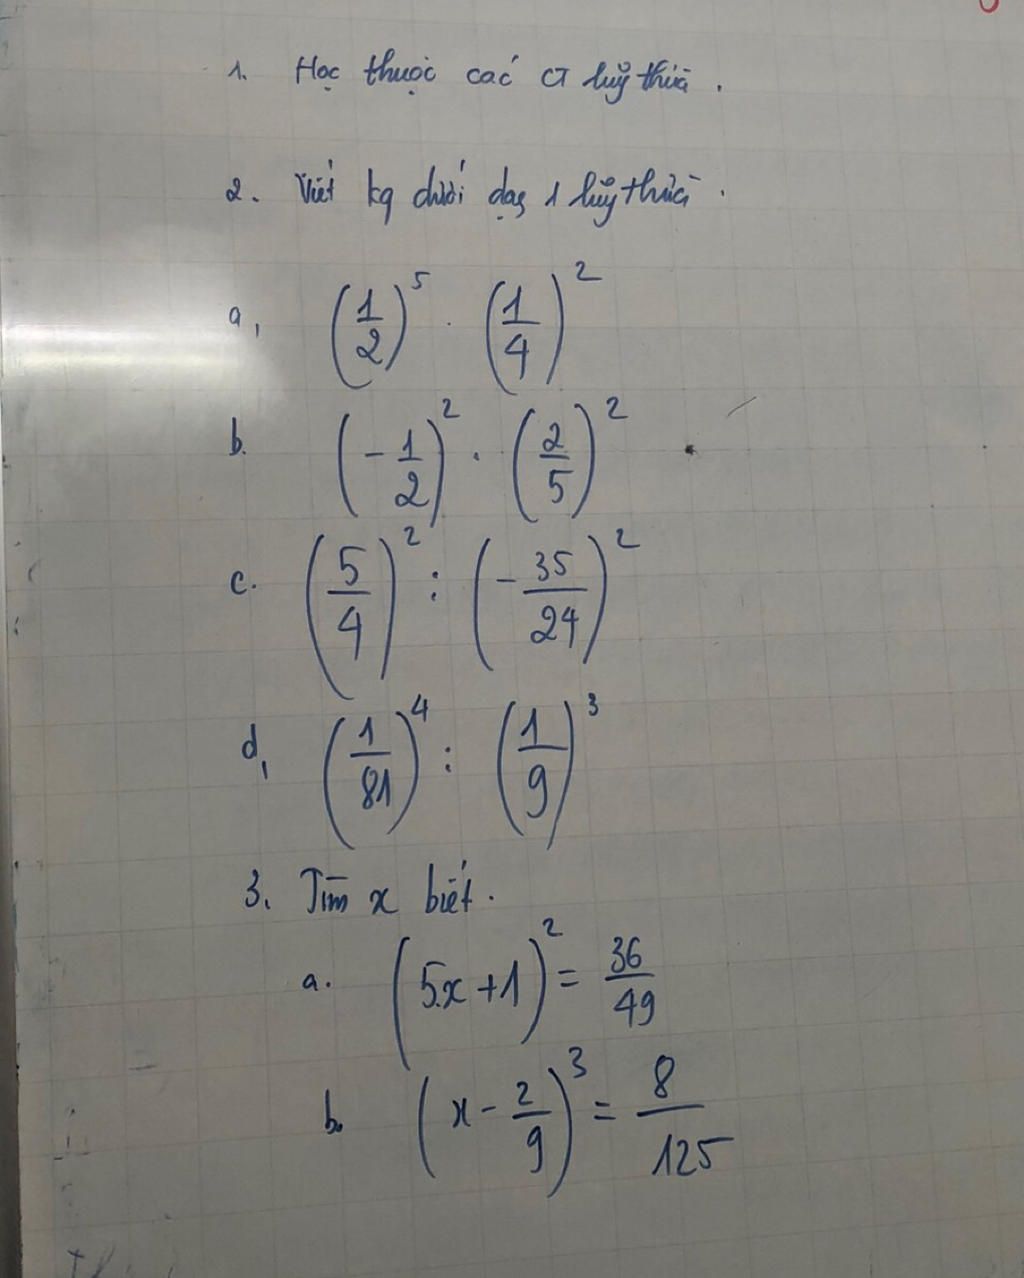 1. Học thuộc các CT luỹ thừa.
2. Viết kq dưới dạg 1 luỹ thừa.
a, (1/2)^5 . (1/4)^2
b. (-1/2)^2 . (2/5)^2
c. (5/4)^2 : (-35/24)^2
d, (1/81)^4 : (1/9)^3
3. Tìm x biết.
a. (5x+1)^2 = 36/49
b. (x - 2/9)^3 = 8/125